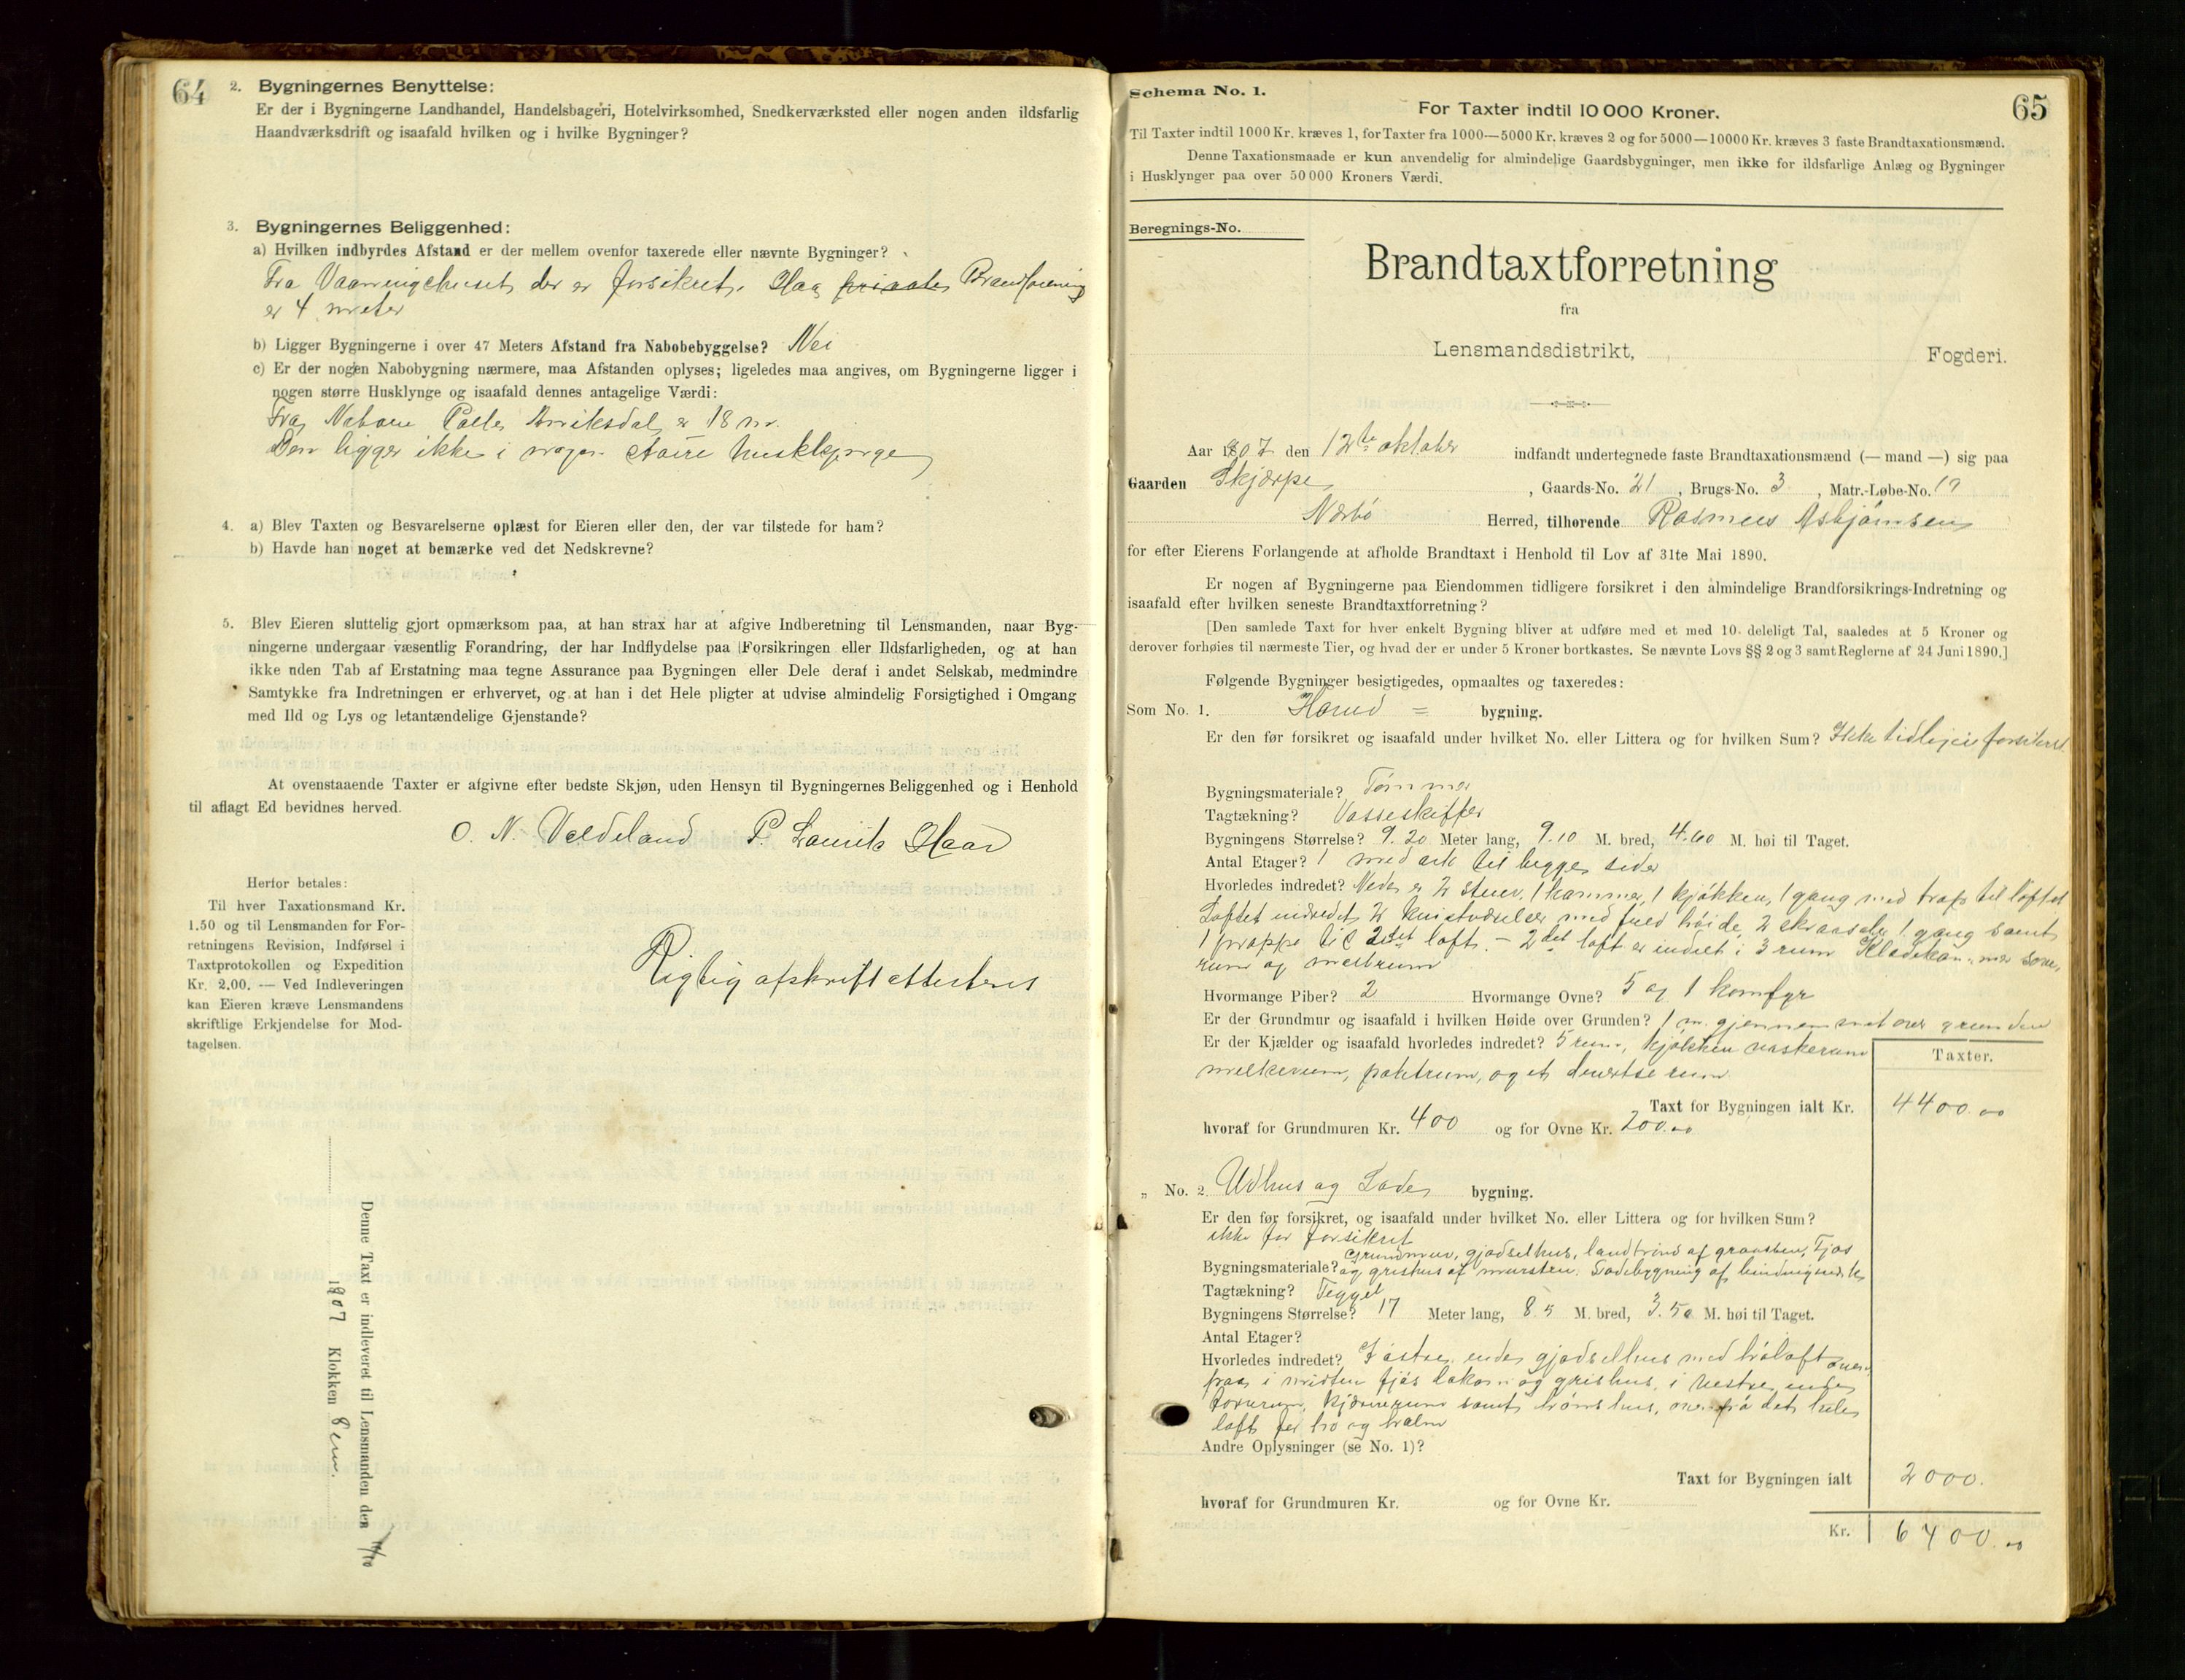 64
2. Bygningernes Benyttelse:
Er der i Bygningerne Landhandel, Handelsbageri, Hotelvirksomhed, Snedkerværksted eller nogen anden ildsfarlig
Haandværksdrift og isaafald hvilken og i hvilke Bygninger?
3. Bygningernes Beliggenhed:
a) Hvilken indbyrdes Afstand er der mellem ovenfor taxerede eller nævnte Bygninger?
Fra Vaaningehuset der er forsikret i Haa private Brandforening
er 4 meter
b) Ligger Bygningerne i over 47 Meters Afstand fra Nabobebyggelse? Nei
c) Er der nogen Nabobygning nærmere, maa Afstanden oplyses; ligeledes maa angives, om Bygningerne ligger i
nogen større Husklynge og isaafald dennes antagelige Værdi:
Fra Naboen er 18 m.
Den ligger ikke i nogen større husklynge
4. a) Blev Taxten og Besvarelserne oplæst for Eieren eller den, der var tilstede for ham?
b) Havde han noget at bemærke ved det Nedskrevne?
5. Blev Eieren sluttelig gjort opmærksom paa, at han strax har at afgive Indberetning til Lensmanden, naar Byg-
ningerne undergaar væsentlig Forandring, der har Indflydelse paa Forsikringen eller Ildsfarligheden, og at han
ikke uden Tab af Erstatning maa tegne Assurance paa Bygningen eller Dele deraf i andet Selskab, medmindre
Samtykke fra Indretningen er erhvervet, og at han i det Hele pligter at udvise almindelig Forsigtighed i Omgang
med Ild og Lys og letantændelige Gjenstande?
At ovenstaaende Taxter er afgivne efter bedste Skjøn, uden Hensyn til Bygningernes Beliggenhed og i Henhold
til aflagt Ed bevidnes herved.
O. N. Valdeland P. Laurits Haar
Herfor betales:
Til hver Taxationsmand Kr.
1.50 og til Lensmanden for For-
retningens Revision, Indførsel i
Taxtprotokollen og Expedition
Kr. 2.00. — Ved Indleveringen
kan Eieren kræve Lensmandens
skriftlige Erkjendelse for Mod-
tagelsen.
Rigtig afskrift attesteres
Denne Taxt er indleveret til Lensmanden den 14/10
1907 Klokken 8 em.
65
Schema No. 1.
For Taxter indtil 10 000 Kroner.
Til Taxter indtil 1000 Kr. kræves 1, for Taxter fra 1000—5000 Kr. kræves 2 og for 5000—10000 Kr. kræves 3 faste Brandtaxationsmænd.
Denne Taxationsmaade er kun anvendelig for almindelige Gaardsbygninger, men ikke for ildsfarlige Anlæg og Bygninger
i Husklynger paa over 50 000 Kroners Værdi.
Beregnings-No.
Brandtaxtforretning
fra
Lensmandsdistrikt, Fogderi.
Aar 1907 den 12te oktober indfandt undertegnede faste Brandtaxationsmænd (— mand —) sig paa
Gaarden Skjærpe, Gaards-No. 21, Brugs-No. 3, Matr.-Løbe-No. 19
Nærbø Herred, tilhørende Rasmus Asbjørnsen
for efter Eierens Forlangende at afholde Brandtaxt i Henhold til Lov af 31te Mai 1890.
Er nogen af Bygningerne paa Eiendommen tidligere forsikret i den almindelige Brandforsikrings-Indretning og
isaafald efter hvilken seneste Brandtaxtforretning?
[Den samlede Taxt for hver enkelt Bygning bliver at udføre med et med 10 deleligt Tal, saaledes at 5 Kroner og
derover forhøies til nærmeste Tier, og hvad der er under 5 Kroner bortkastes. Se nævnte Lovs §§ 2 og 3 samt Reglerne af 24 Juni 1890.]
Følgende Bygninger besigtigedes, opmaaltes og taxeredes:
Som No. 1. Hoved = bygning.
Er den før forsikret og isaafald under hvilket No. eller Littera og for hvilken Sum? Ikke tidligere forsikret
Bygningsmateriale? Tømmer
Tagtækning? Vasseskiffer
Bygningens Størrelse? 9.20 Meter lang, 9.10 M. bred, 4.60 M. høi til Taget.
Antal Etager? 1 med ark til begge sider
Hvorledes indredet? Nede er 2 stuer, 1 kammer, 1 kjøkken, 1 gang med trap til loftet
Loftet indredet 2 kvistværelser med fuld høide, 2 skraasaler 1 gang samt
1 trappe til 2det loft. — 2det loft er indret i 3 rum Klædekammer, sove,
rum og
Hvormange Piber? 2 Hvormange Ovne? 5 og 1 komfyr
Er der Grundmur og isaafald i hvilken Høide over Grunden? 1 m. gjennemsnet over grunden
Er der Kjælder og isaafald hvorledes indredet? 5 rum, kjøkken vaskerum
melkerum, potetrum, og et rum
Taxter.
Taxt for Bygningen ialt Kr. 4400.00
hvoraf for Grundmuren Kr. 400 og for Ovne Kr. 200.00
„ No. 2 Udhus og Lade bygning.
Er den før forsikret, og isaafald under hvilket No. eller Littera og for hvilken Sum?
ikke før forsikret
Bygningsmateriale? Grundmur, gjødselhus, af graasten, Fjøs
og grishus af mursten. Ladebygning af bindingsverk
Tagtækning? Teggel
Bygningens Størrelse? 17 Meter lang, 8.5 M. bred, 3.50 M. høi til Taget.
Antal Etager?
Hvorledes indredet? I østre ende gjødselhus med høloft oven
paa i midten fjøs og grishus, i vestre ende
forrum, samt hønshus, det hele
loft for hø og halm
Andre Oplysninger (se No. 1)?
Taxt for Bygningen ialt 2000.
hvoraf for Grundmuren Kr. og for Ovne Kr.
Kr. 6400.00